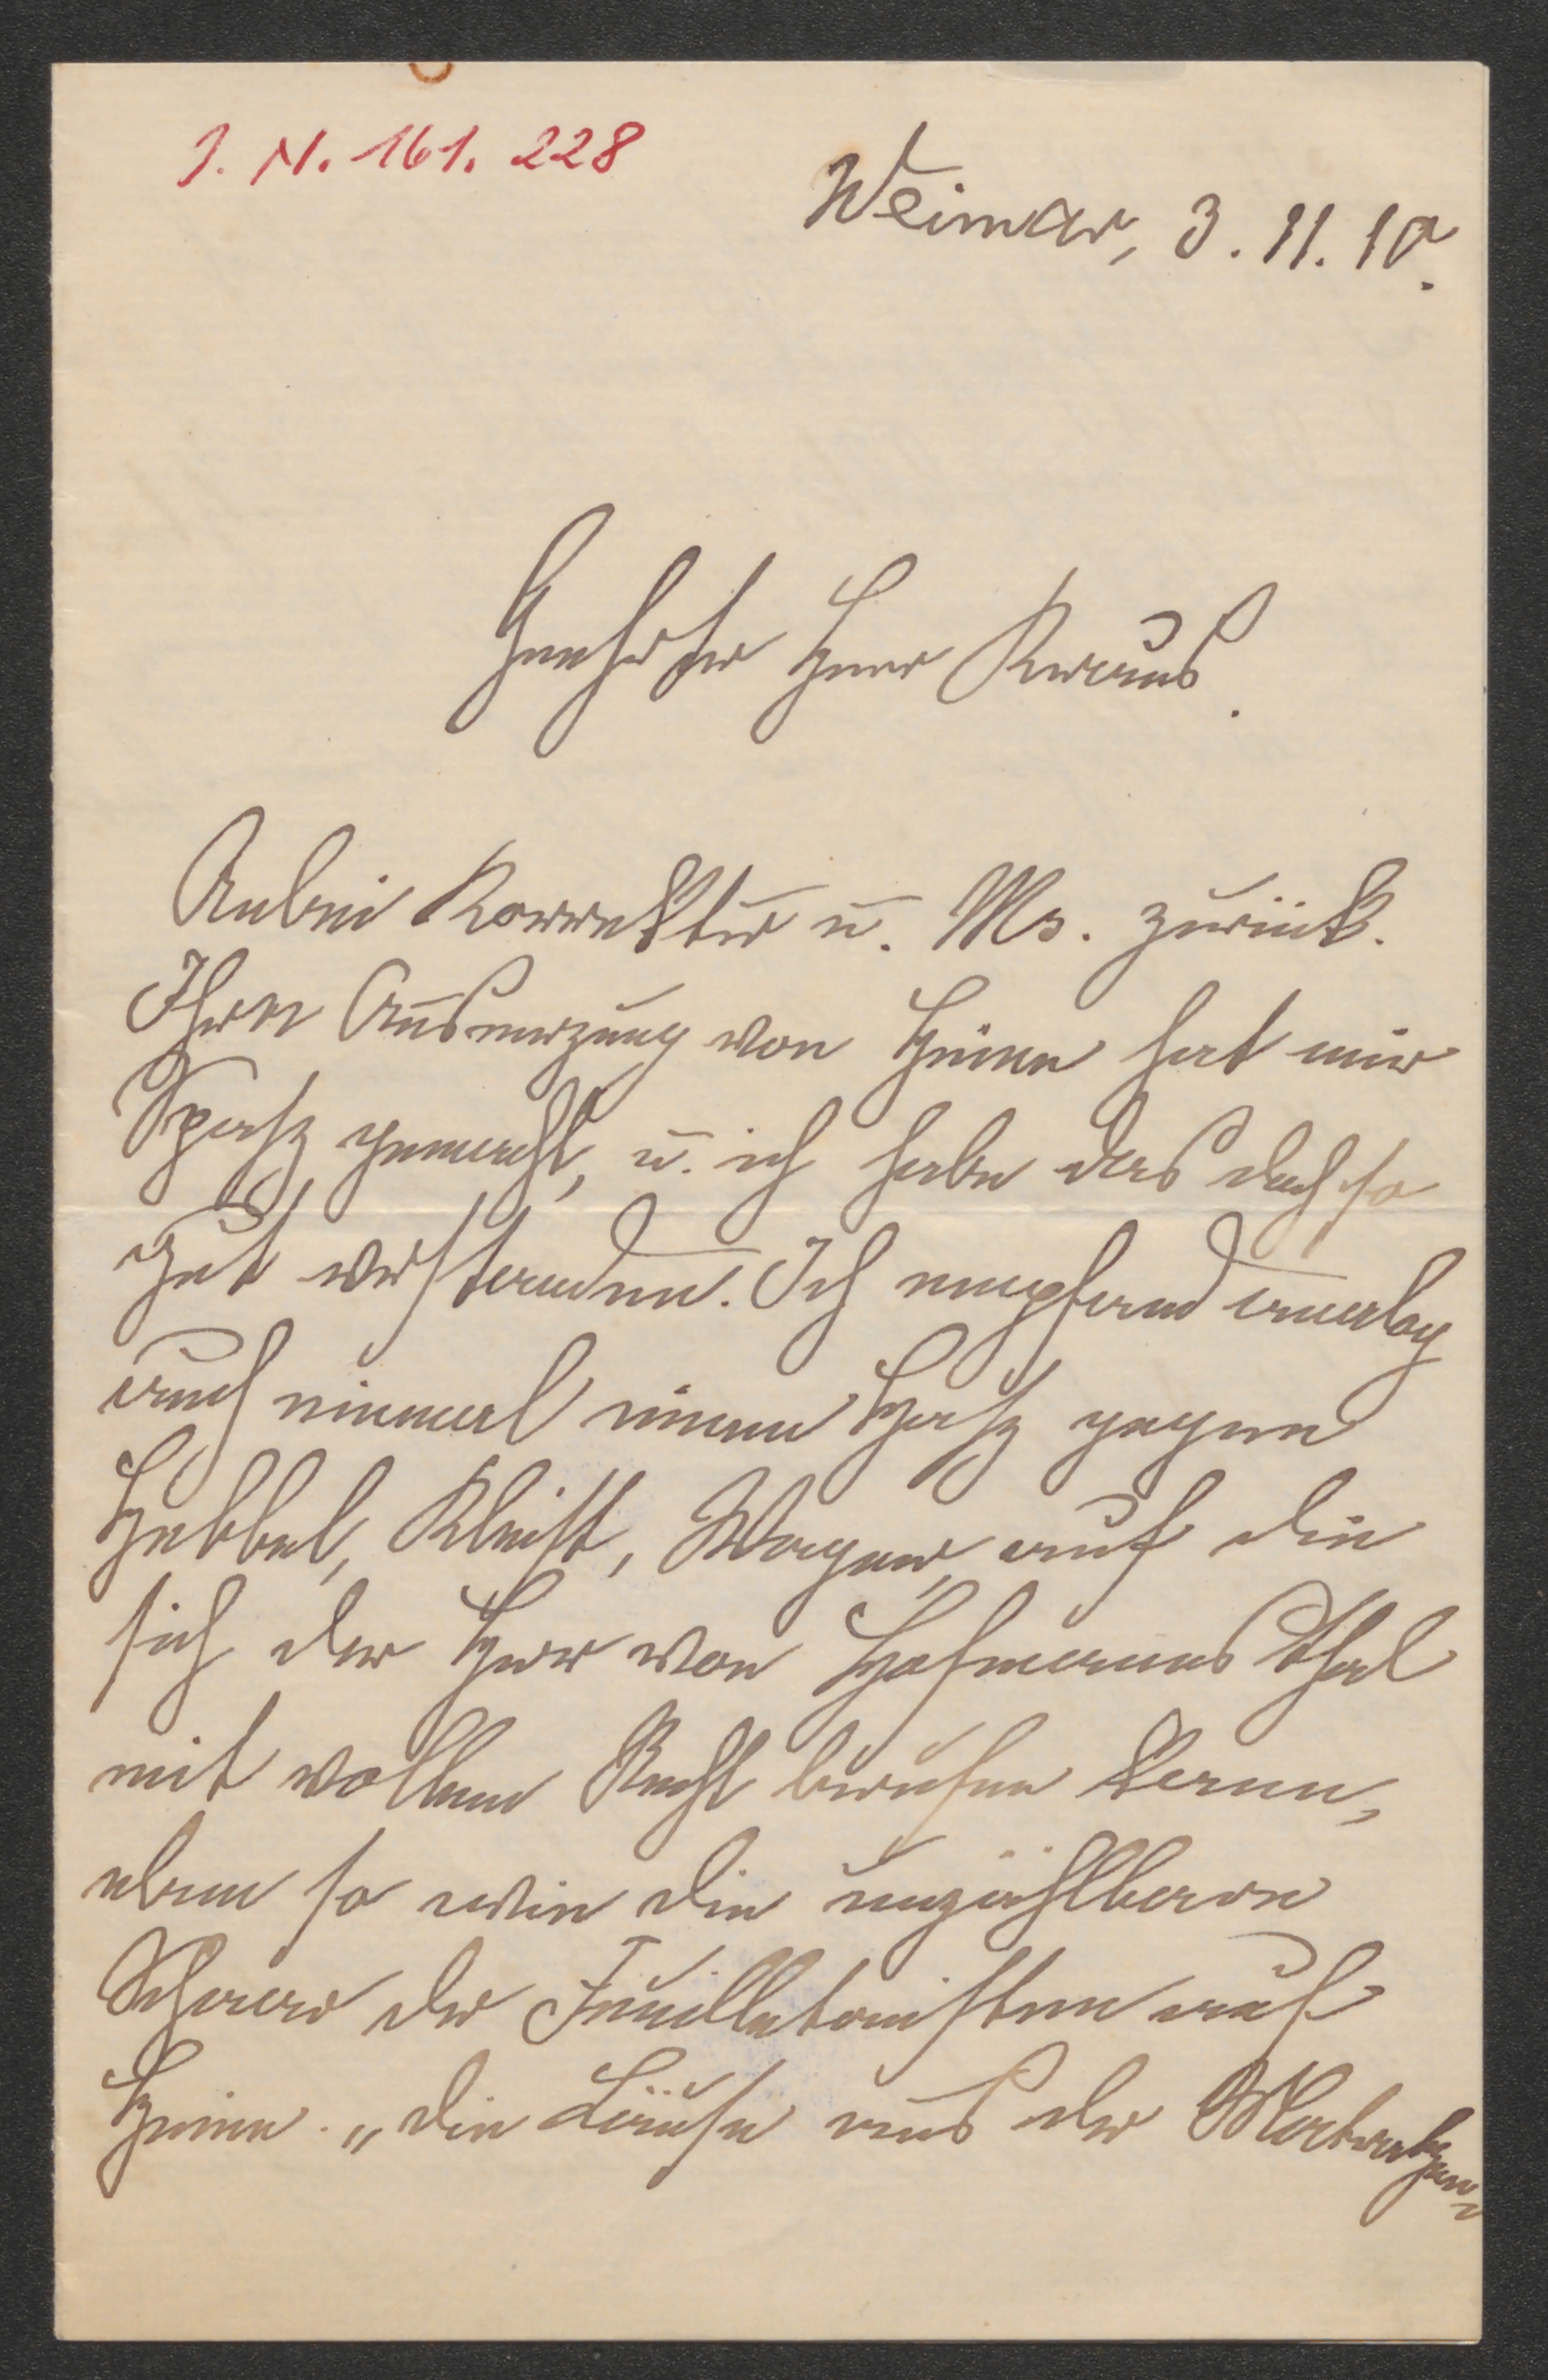 J. N. 161. 228
Weimar, 3. 11. 10.
Geehrter Herr Kraus.
Anbei Korrektur u. Ms. zurück.
Ihre Ausmerzung von Heine hat mir
Spaß gemacht, u. ich habe das doch so
gut verstanden. Ich empfand analog
auch einmal einen Haß gegen
Hebbel, Kleist, Wagner, auf die
sich der Herr von Hofmannsthal
mit vollem Recht berufen kann,
eben so wie die unzählbare
Schaar der Feuilletonisten auf
Heine. „die Läuse aus der Matratzen-